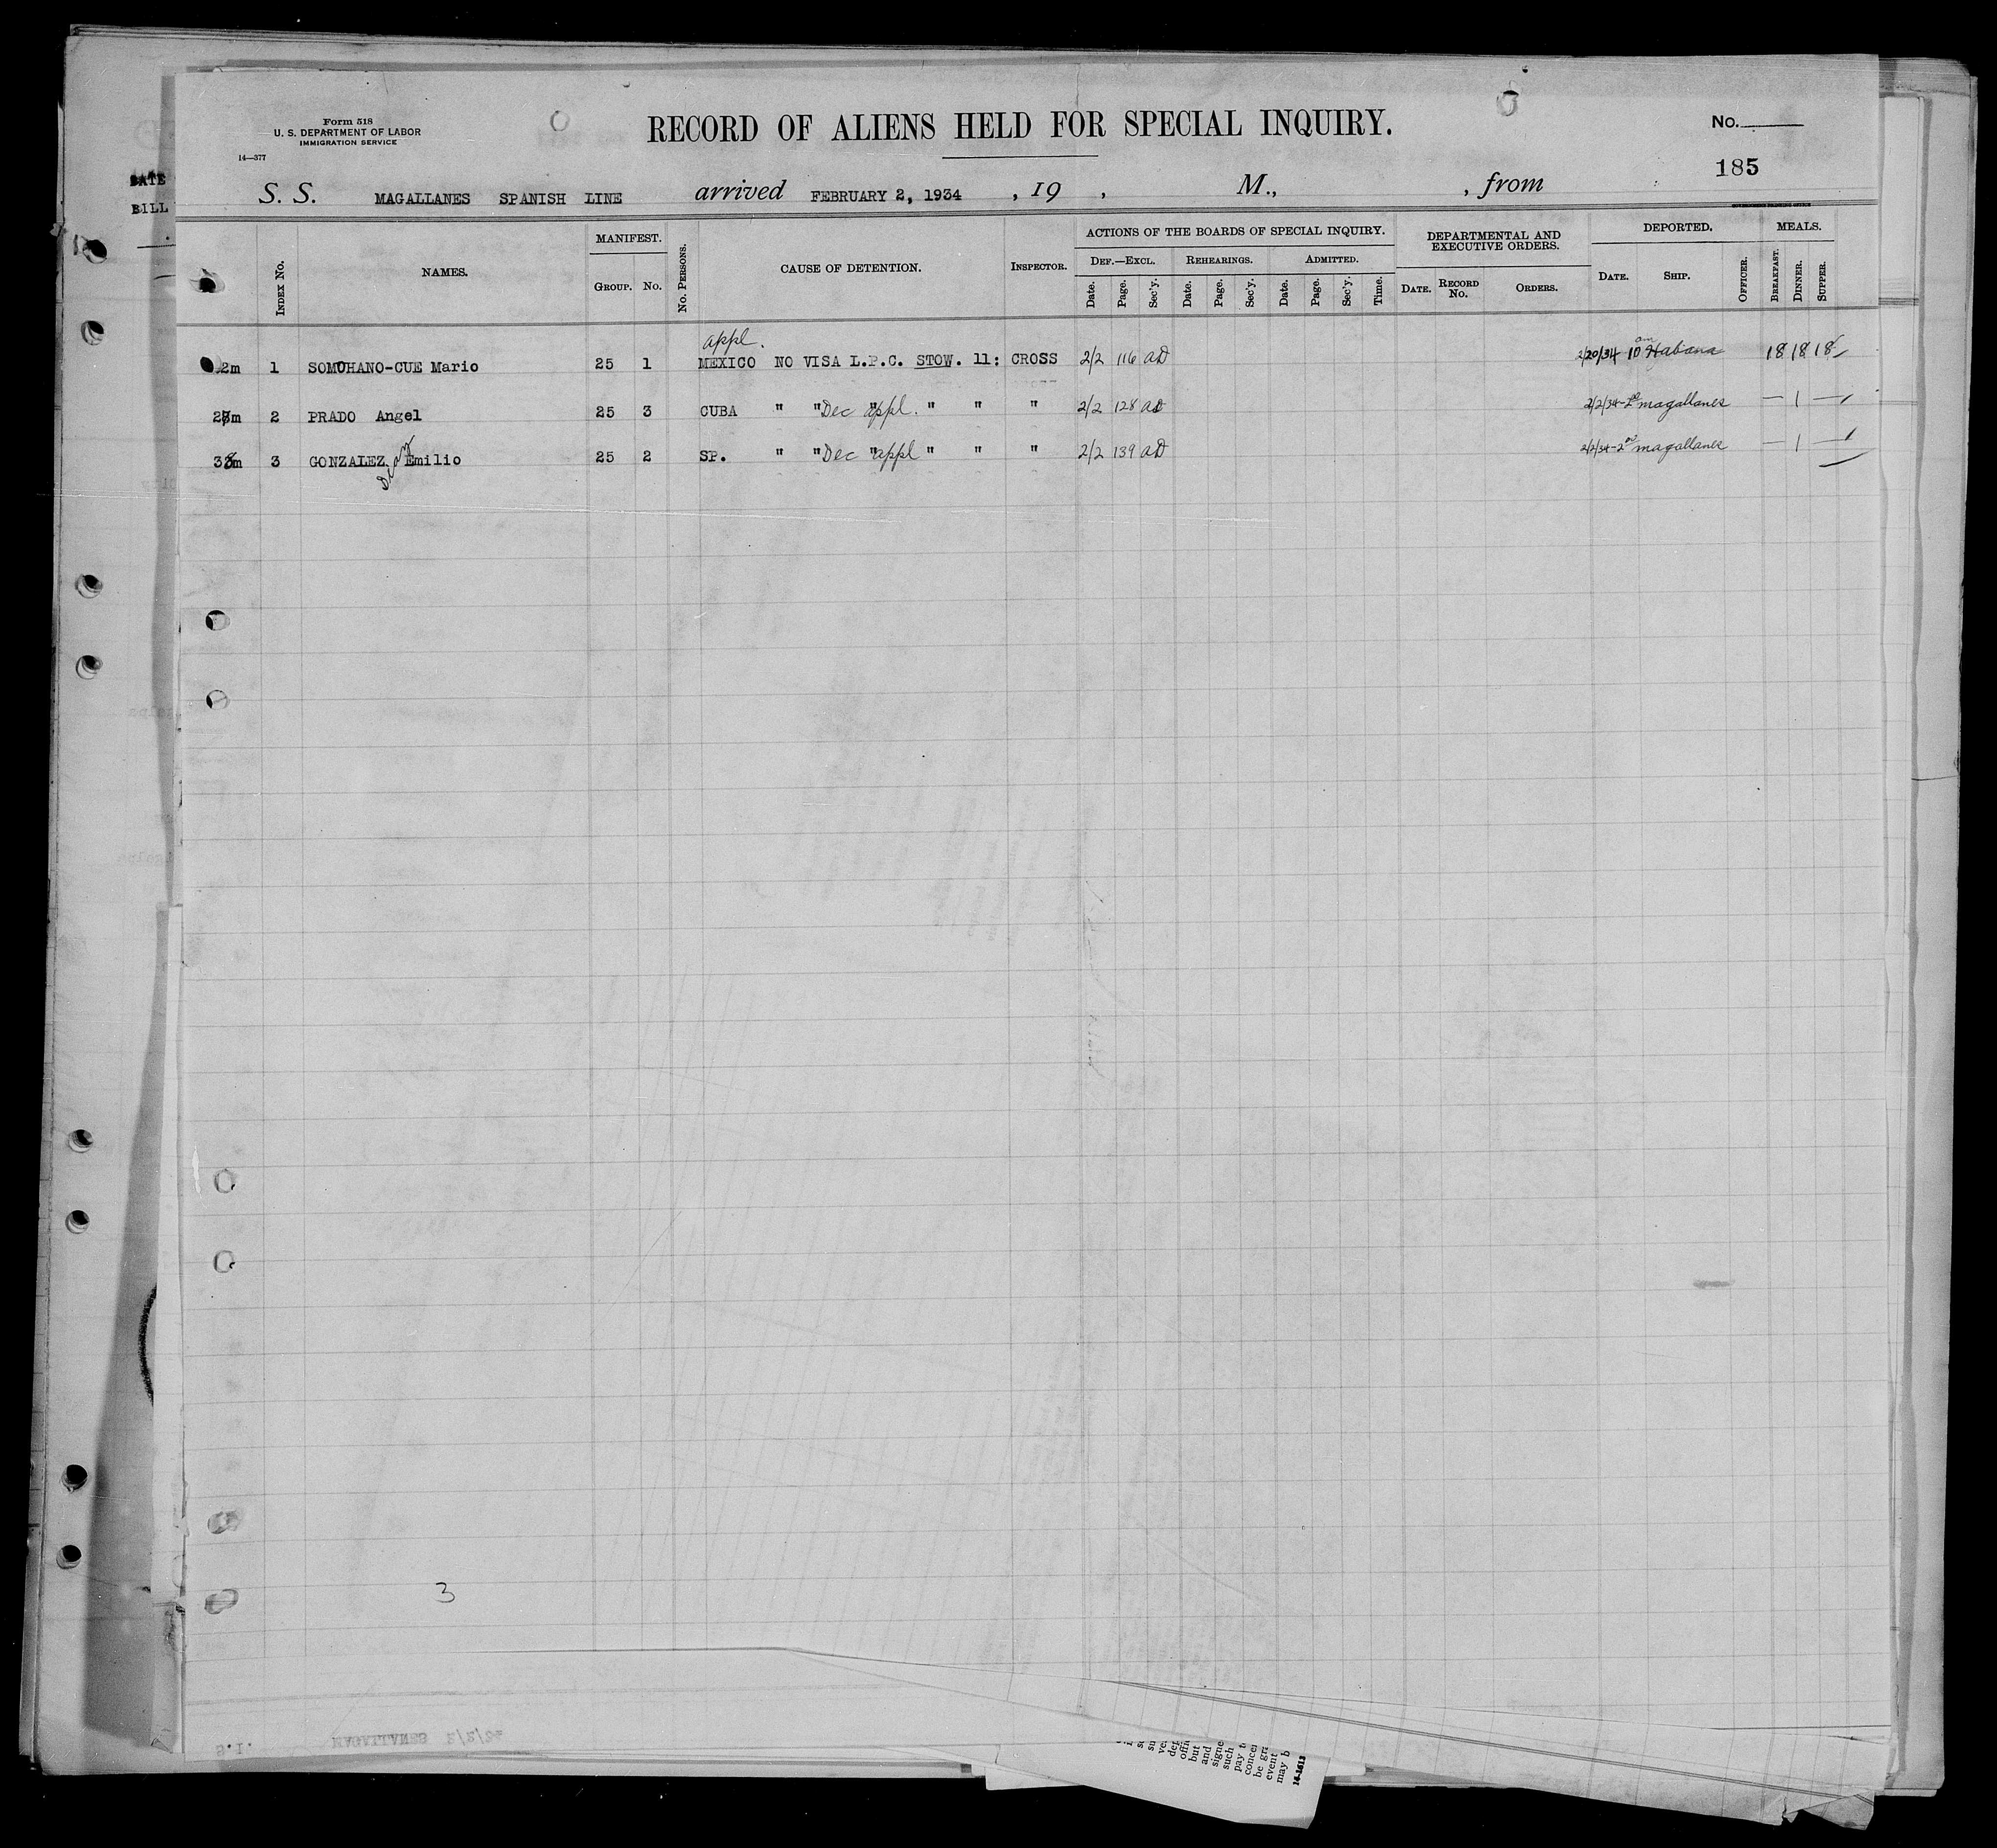 Form 518
U. S. DEPARTMENT OF LABOR
IMMIGRATION SERVICE
14—377
RECORD OF ALIENS HELD FOR SPECIAL INQUIRY.
No.
185
DATE
BILL
S. S. MAGALLANES SPANISH LINE arrived FEBRUARY 2, 1934 , 19 , M., , from
INDEX No. NAMES. MANIFEST. GROUP. No. No. PERSONS. CAUSE OF DETENTION. INSPECTOR.
ACTIONS OF THE BOARDS OF SPECIAL INQUIRY.
DEF.—EXCL. Date. Page. Sec'y. REHEARINGS. Date. Page. Sec'y. ADMITTED. Date. Page. Sec'y. Time.
DEPARTMENTAL AND EXECUTIVE ORDERS. DATE. RECORD No. ORDERS.
DEPORTED. DATE. SHIP. OFFICER.
MEALS. BREAKFAST. DINNER. SUPPER.
appl.
2m 1 SOMOHANO-CUE Mario 25 1 MEXICO NO VISA L.P.C. STOW. 11: CROSS 2/2 116 AD 2/20/34 10 am Habana 18 18 18
2m 2 PRADO Angel 25 3 CUBA " " Dec appl. " " " " 2/2 128 AD 2/2/34 - 2 Magallanes — 1 —
3m 3 GONZALEZ Emilio 25 2 SP. " " Dec appl " " " " 2/2 139 AD 2/2/34 - 2 Magallanes — 1 —
3
S.I. MAGALLANES 2/2/34
14-1613